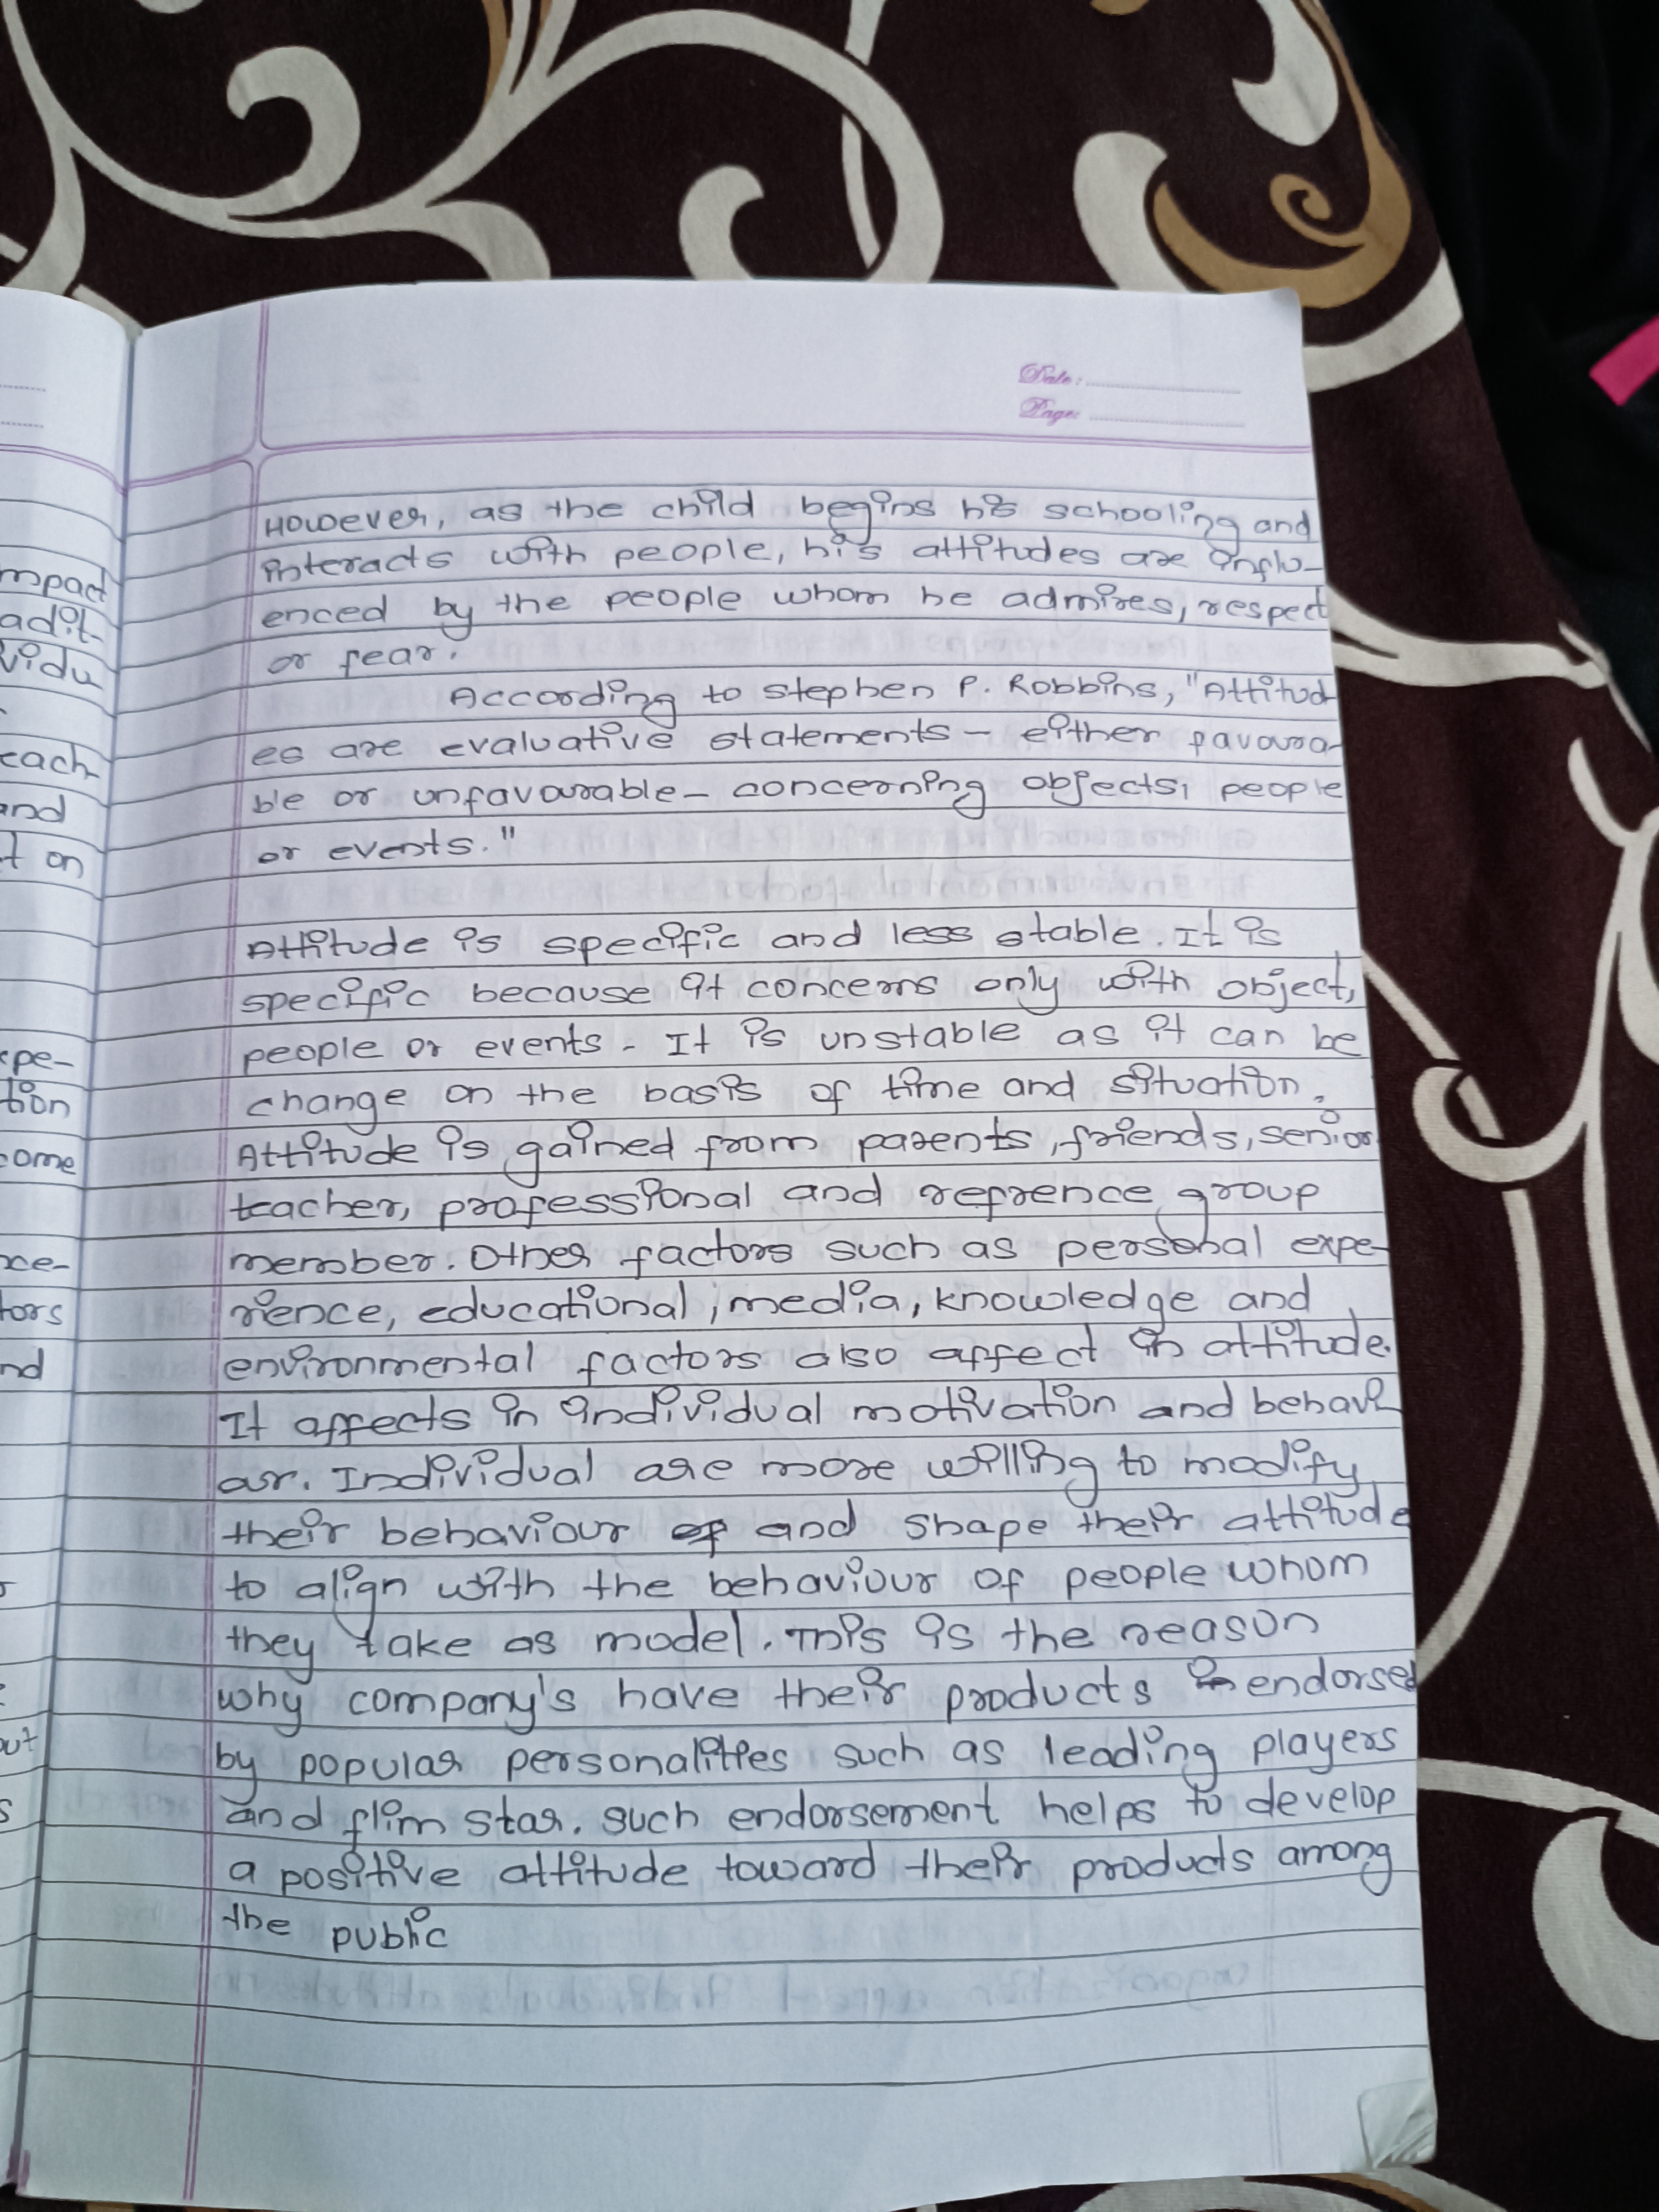 Date:
Page:
However, as the child begins his schooling and
interacts with people, his attitudes are influ-
enced by the people whom he admires, respect
or fear.
According to stephen P. Robbins, "Attitud
es are evaluative statements - either favoura-
ble or unfavourable - concerning objects, people
or events."
Attitude is specific and less stable. It is
specific because it concerns only with object,
people or events. It is unstable as it can be
change on the basis of time and situation.
Attitude is gained from parents, friends, senior
teacher, professional and refrence group
member. Other factors such as personal expe-
rience, educational, media, knowledge and
environmental factors also affect in attitude.
It affects in individual motivation and behavi
our. Individual are more willing to modify
their behaviour and shape their attitude
to align with the behaviour of people whom
they take as model. This is the reason
why company's have their products endorsed
by popular personalities such as leading players
and flim star. such endorsement helps to develop
a positive attitude toward their products among
the public
mpact
adit-
vidu
each
and
t on
xpe-
tion
come
nce-
tors
nd
out
s